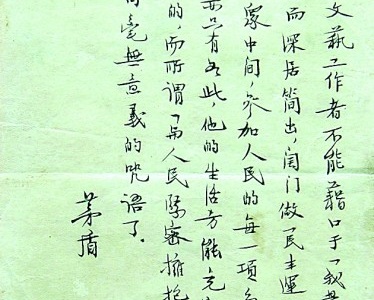 文藝工作者不能藉口于「我
而深居简出,闭门做「民主運
眾中间,参加人民的每一項
只有如此,他的生活方能充
的,而所谓「与人民緊密擁抱
毫無意義的咒语了.
茅盾